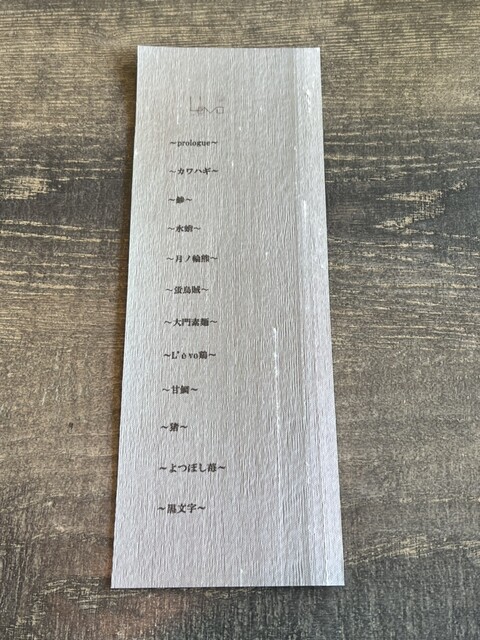 L'évo
～prologue～
～カワハギ～
～鰺～
～水蛸～
～月ノ輪熊～
～蛍烏賊～
～大門素麺～
～L'évo鶏～
～甘鯛～
～猪～
～よつぼし苺～
～黒文字～